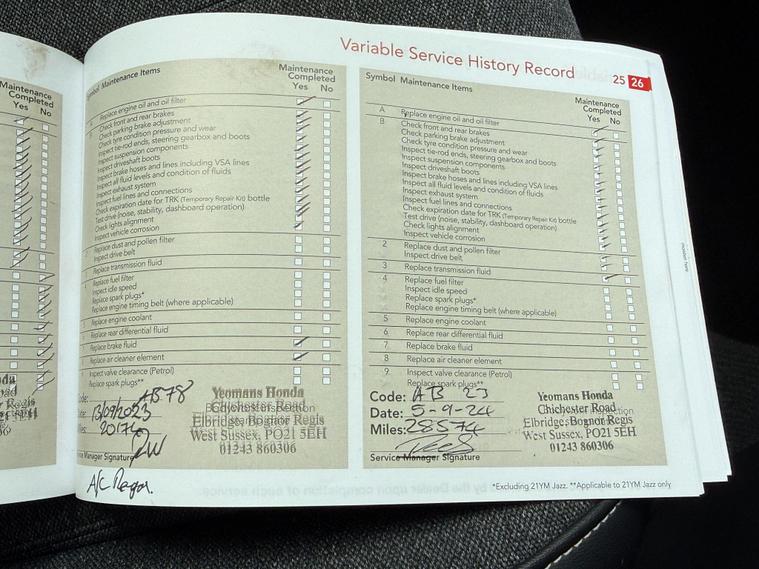 Variable Service History Record 25 26
Maintenance
Completed
Yes No
Symbol Maintenance Items
Maintenance
Completed
Yes No
Replace engine oil and oil filter
Check front and rear brakes
Check parking brake adjustment
Check tyre condition pressure and wear
Inspect tie-rod ends, steering gearbox and boots
Inspect suspension components
Inspect driveshaft boots
Inspect brake hoses and lines including VSA lines
Inspect all fluid levels and condition of fluids
Inspect exhaust system
Inspect fuel lines and connections
Check expiration date for TRK (Temporary Repair Kit) bottle
Test drive (noise, stability, dashboard operation)
Check lights alignment
Inspect vehicle corrosion
Replace dust and pollen filter
Inspect drive belt
Replace transmission fluid
Replace fuel filter
Inspect idle speed
Replace spark plugs*
Replace engine timing belt (where applicable)
Replace engine coolant
Replace rear differential fluid
Replace brake fluid
Replace air cleaner element
Inspect valve clearance (Petrol)
Replace spark plugs**
AB78
13/09/2023
Yeomans Honda
Chichester Road
Elbridge, Bognor Regis
West Sussex, PO21 5EH
01243 860306
Manager Signature
A/C
Symbol Maintenance Items
Maintenance
Completed
Yes No
A Replace engine oil and oil filter
B Check front and rear brakes
Check parking brake adjustment
Check tyre condition pressure and wear
Inspect tie-rod ends, steering gearbox and boots
Inspect suspension components
Inspect driveshaft boots
Inspect brake hoses and lines including VSA lines
Inspect all fluid levels and condition of fluids
Inspect exhaust system
Inspect fuel lines and connections
Check expiration date for TRK (Temporary Repair Kit) bottle
Test drive (noise, stability, dashboard operation)
Check lights alignment
Inspect vehicle corrosion
2 Replace dust and pollen filter
Inspect drive belt
3 Replace transmission fluid
4 Replace fuel filter
Inspect idle speed
Replace spark plugs*
Replace engine timing belt (where applicable)
5 Replace engine coolant
6 Replace rear differential fluid
7 Replace brake fluid
8 Replace air cleaner element
9 Inspect valve clearance (Petrol)
Replace spark plugs**
Code: AB 23
Date: 5-9-24
Miles: 28574
Yeomans Honda
Chichester Road
Elbridge, Bognor Regis
West Sussex, PO21 5EH
01243 860306
Service Manager Signature
*Excluding 21YM Jazz. **Applicable to 21YM Jazz only